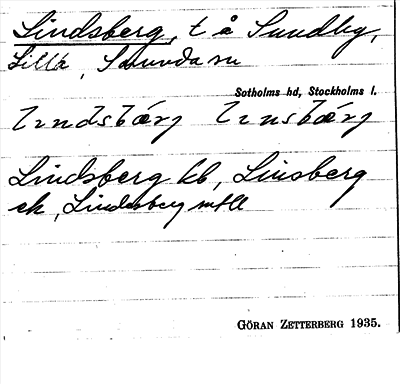 Lindsberg, t å Sundby,
Lilla, Sorunda sn
Sotholms hd, Stockholms l.
Lindsberg kb, Linsberg
ek, Lindesberg mtll
GÖRAN ZETTERBERG 1935.